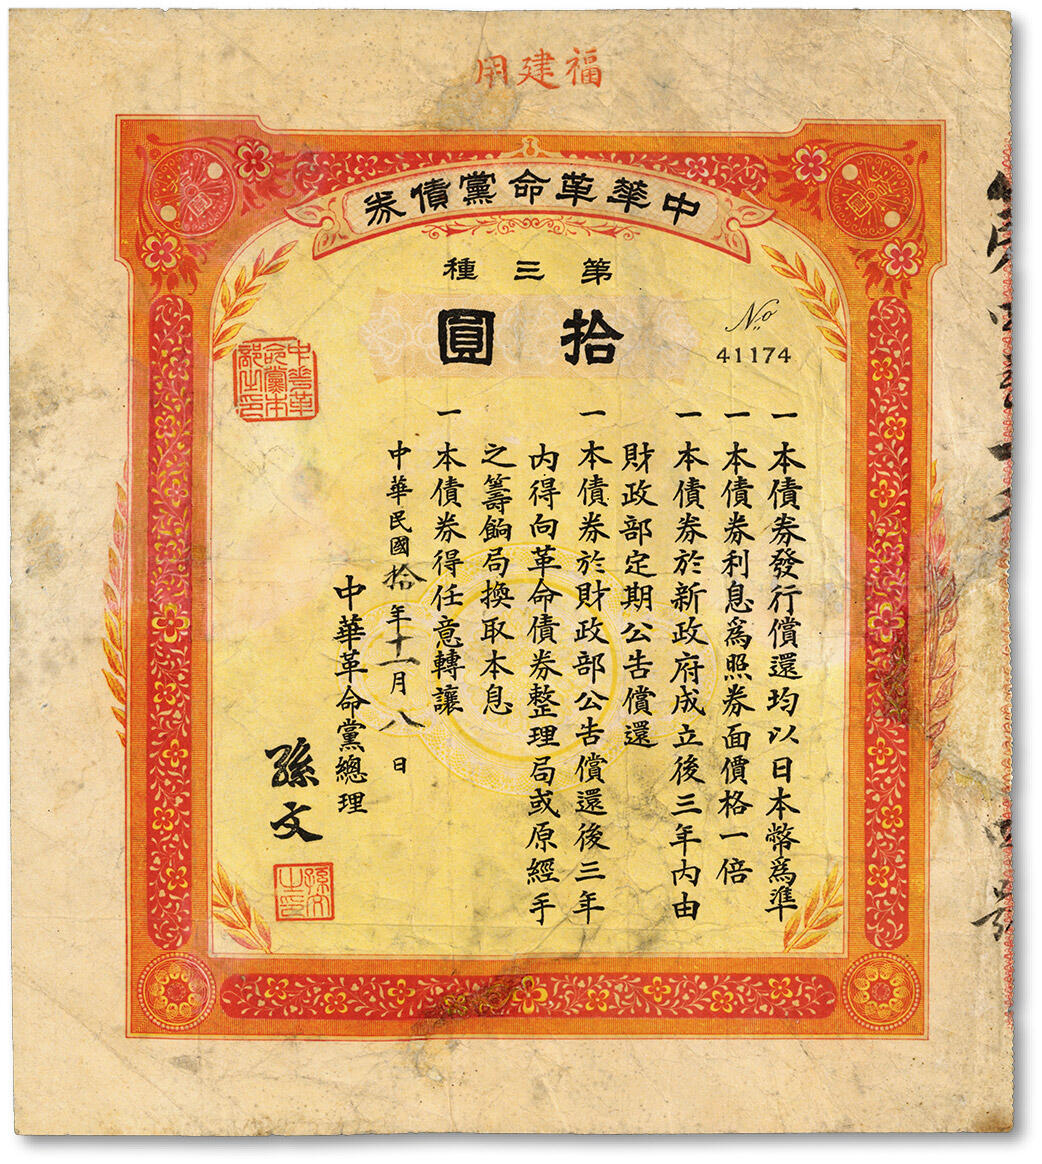 福建用
中華革命黨債券
第三種
拾圓
No
41174
一本債券發行償還均以日本幣爲準
一本債券利息爲照券面價格一倍
一本債券於新政府成立後三年內由
財政部定期公告償還
一本債券於財政部公告償還後三年
內得向革命債券整理局或原經手
之籌餉局換取本息
一本債券得任意轉讓
中華民國拾年十一月八日
中華革命黨總理
孫文
中華革命黨本部之印
孫文之印